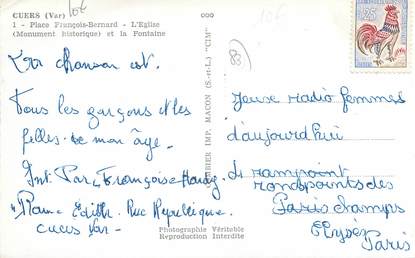 CUERS (Var)
1 - Place François-Bernard - L'Eglise
(Monument historique) et la Fontaine
10f
10f
83
0.25
Ma chanson est.
Tous les garçons et les
filles de mon âge.
Int. Par Françoise Hardy
Edith. Rue République
Cuers Var
COMBIER IMP. MACON (S.-et-L.) "CIM"
Photographie Véritable
Reproduction Interdite
Jeux radio femmes
d'aujourd'hui
rondpoints des
Paris champs
Elysées
Paris